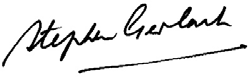 Stephen Gerlach